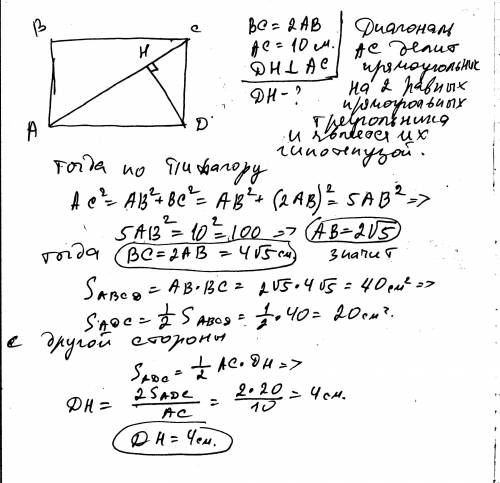 B
C
H
A
D
BC = 2AB
AC = 10 м.
DH ⊥ AC
DH - ?
Диагональ
AC делит
прямоугольник
на 2 равных
прямоугольных
треугольника
и является их
гипотенузой.
Тогда по Пифагору
AC² = AB² + BC² = AB² + (2AB)² = 5AB² =>
5AB² = 10² = 100 => AB = 2√5
тогда BC = 2AB = 4√5 см значит
S ABCD = AB · BC = 2√5 · 4√5 = 40 см² =>
S ADC = 1/2 S ABCD = 1/2 · 40 = 20 см².
С другой стороны
S ADC = 1/2 AC · DH =>
DH = 2S ADC / AC = 2·20 / 10 = 4 см.
DH = 4 см.